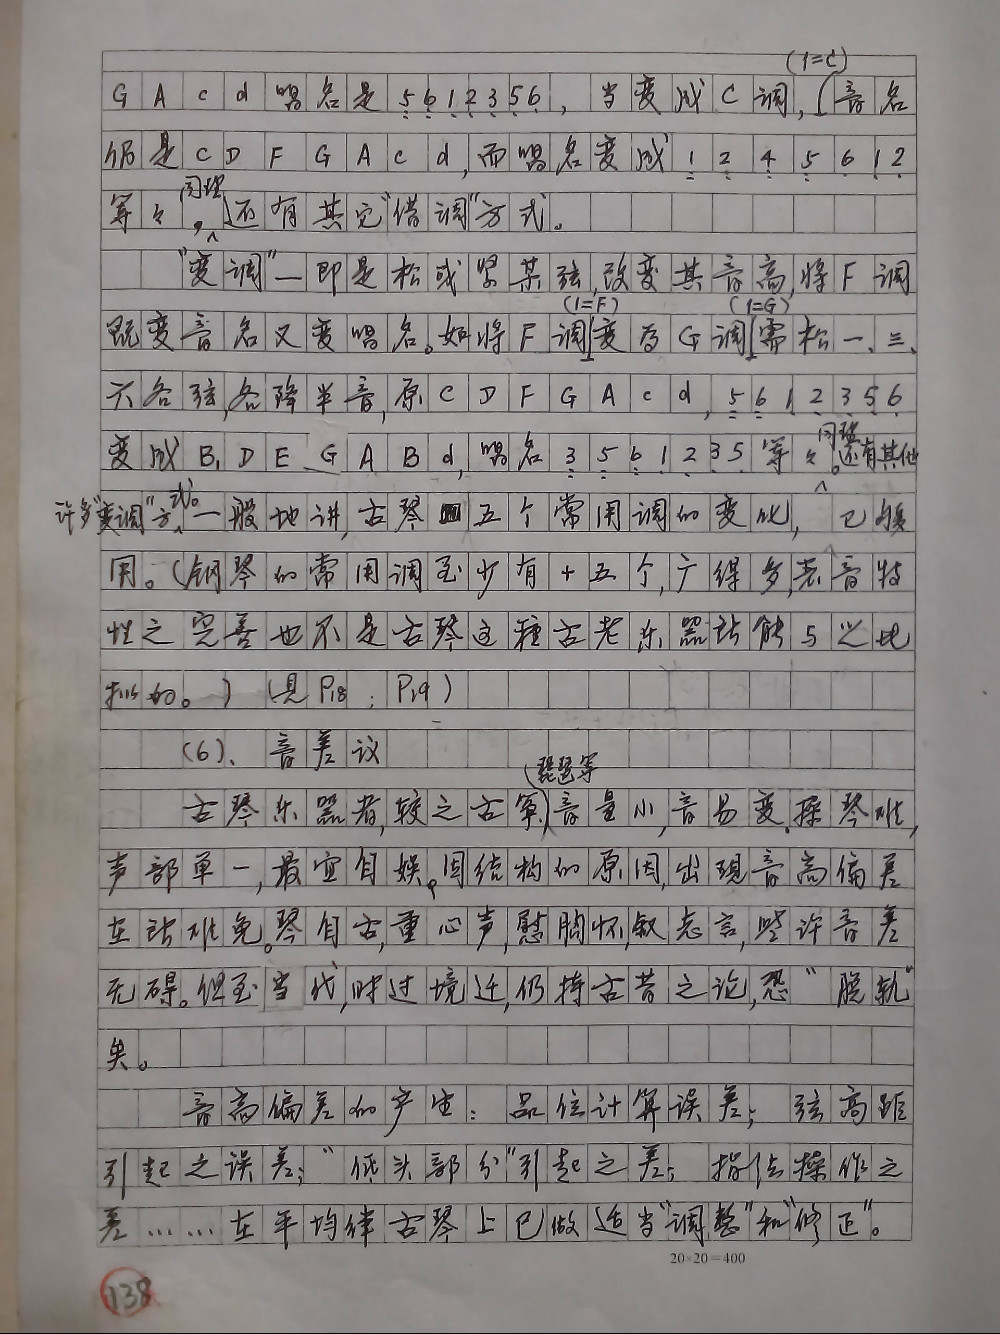 (1=C)
G A c d 唱名是 5 6 1 2 3 5 6，当变成C调，音名
仍是 C D F G A c d，而唱名变成 1 2 4 5 6 1 2
等々，同理还有其它"借调"方式。
"变调"—即是松或紧某弦，改变其音高，将F调
(1=F) (1=G)
既变音名又变唱名。如将F调变为G调需松一、三、
六各弦，各降半音，原 C D F G A c d，5 6 1 2 3 5 6
变成 B, D E G A B d，唱名 3 5 6 1 2 3 5 等々。同理还有其他
许多"变调"方式。一般地讲，古琴五个常用调的变化，已够
用。(钢琴的常用调至少有十五个，广得多，若音特
性之完善也不是古琴这种古老乐器所能与之比
拟的。) (见P18；P19)
(6)、音差议
琵琶等
古琴乐器者，较之古筝，音量小，音易变，操琴难，
声部单一，最宜自娱。因结构的原因，出现音高偏差
在所难免。琴自古，重心声，慰胸怀，叙志言，些许音差
无碍。但至当代，时过境迁，仍持古昔之论，恐"脱轨"
矣。
音高偏差的产生：品位计算误差；弦高距
引起之误差；"低头部分"引起之差；指法操作之
差……在平均律古琴上已做适当"调整"和"修正"。
20×20=400
138